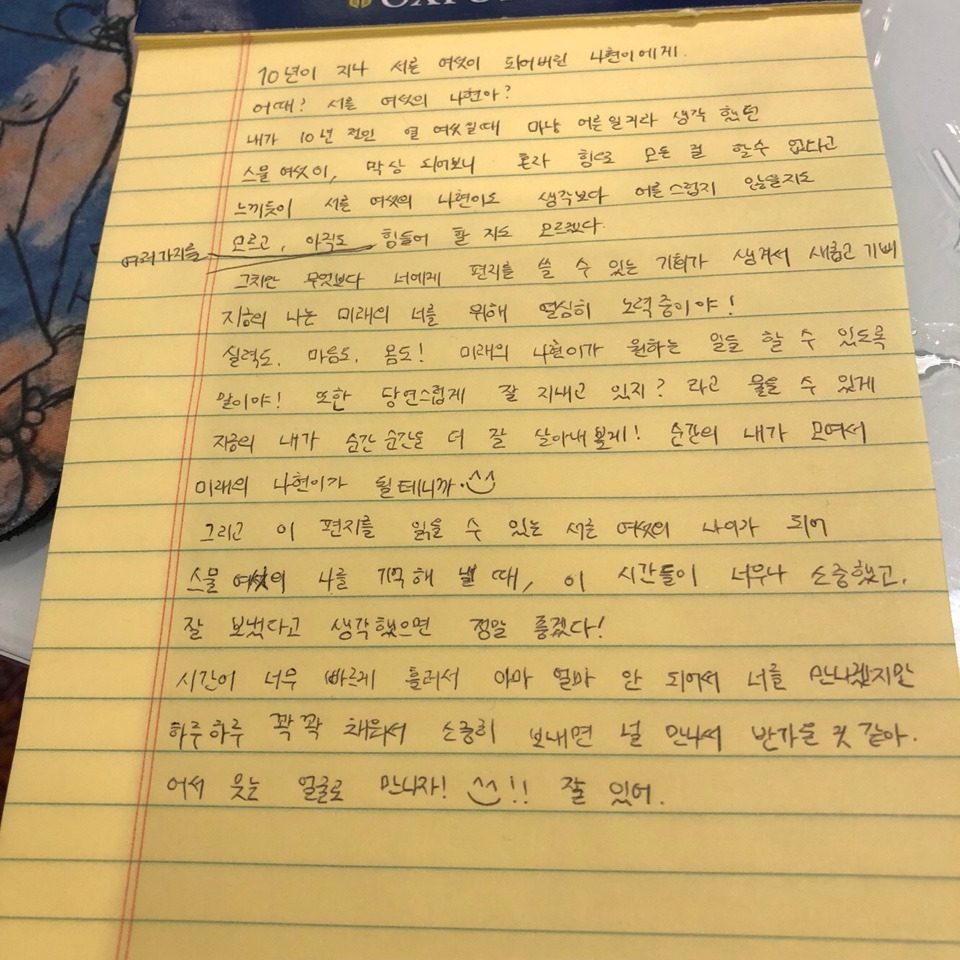 10년이 지나 서른 여섯이 되어버린 나현이에게.
어때? 서른 여섯의 나현아?
내가 10년 전인 열 여섯일때 마냥 어른일거라 생각 했던
스물 여섯이, 막상 되어보니 혼자 힘으로 모든 걸 할수 없다고
느끼듯이 서른 여섯의 나현이도 생각보다 어른스럽지 않을지도
모르고, 아직도 힘들어 할 지도 모르겠다.
여러가지를
그치만 무엇보다 너에게 편지를 쓸 수 있는 기회가 생겨서 새롭고 기뻐
지금의 나는 미래의 너를 위해 열심히 노력중이야!
실력도, 마음도, 몸도! 미래의 나현이가 원하는 일들 할 수 있도록
말이야! 또한 당연스럽게 잘 지내고 있지? 라고 물을 수 있게
지금의 내가 순간 순간을 더 잘 살아내볼게! 순간의 내가 모여서
미래의 나현이가 될테니까. ^^
그리고 이 편지를 읽을 수 있는 서른 여섯의 나이가 되어
스물 여섯의 나를 기억해 낼 때, 이 시간들이 너무나 소중했고,
잘 보냈다고 생각했으면 정말 좋겠다!
시간이 너무 빠르게 흘러서 아마 얼마 안 되어서 너를 만나겠지만
하루하루 꽉꽉 채워서 소중히 보내면 널 만나서 반가울 것 같아.
어서 웃는 얼굴로 만나자! ^^!! 잘 있어.